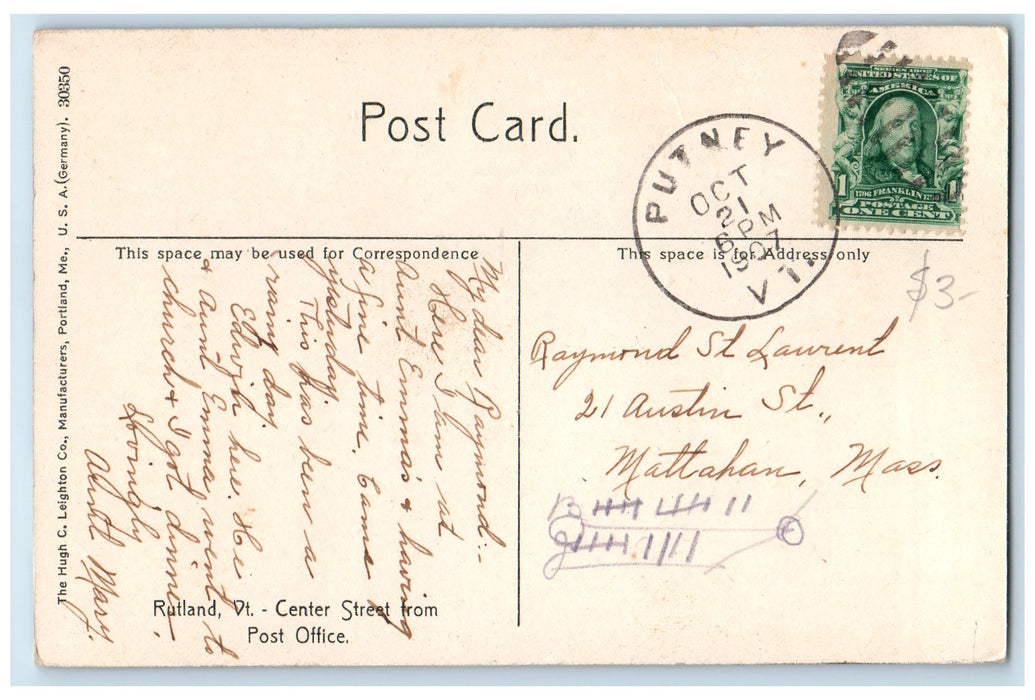 Post Card.
SERIES 1902
UNITED STATES OF
AMERICA
1 1
FRANKLIN
POSTAGE
ONE CENT
PUTNEY
OCT
21
6 PM
1907
VT.
$3-
This space may be used for Correspondence
This space is for Address only
My dear Raymond:-
Here I am at
Aunt Emma's & having
a fine time. Came
yesterday.
This has been a
rainy day.
Edwin here. He
& Aunt Emma went to
church & I got dinner.
Lovingly
Aunt Mary.
Raymond St Laurent
21 Austin St.,
Mattahan, Mass.
Rutland, Vt. - Center Street from
Post Office.
The Hugh C. Leighton Co., Manufacturers, Portland, Me., U. S. A. (Germany). 30350